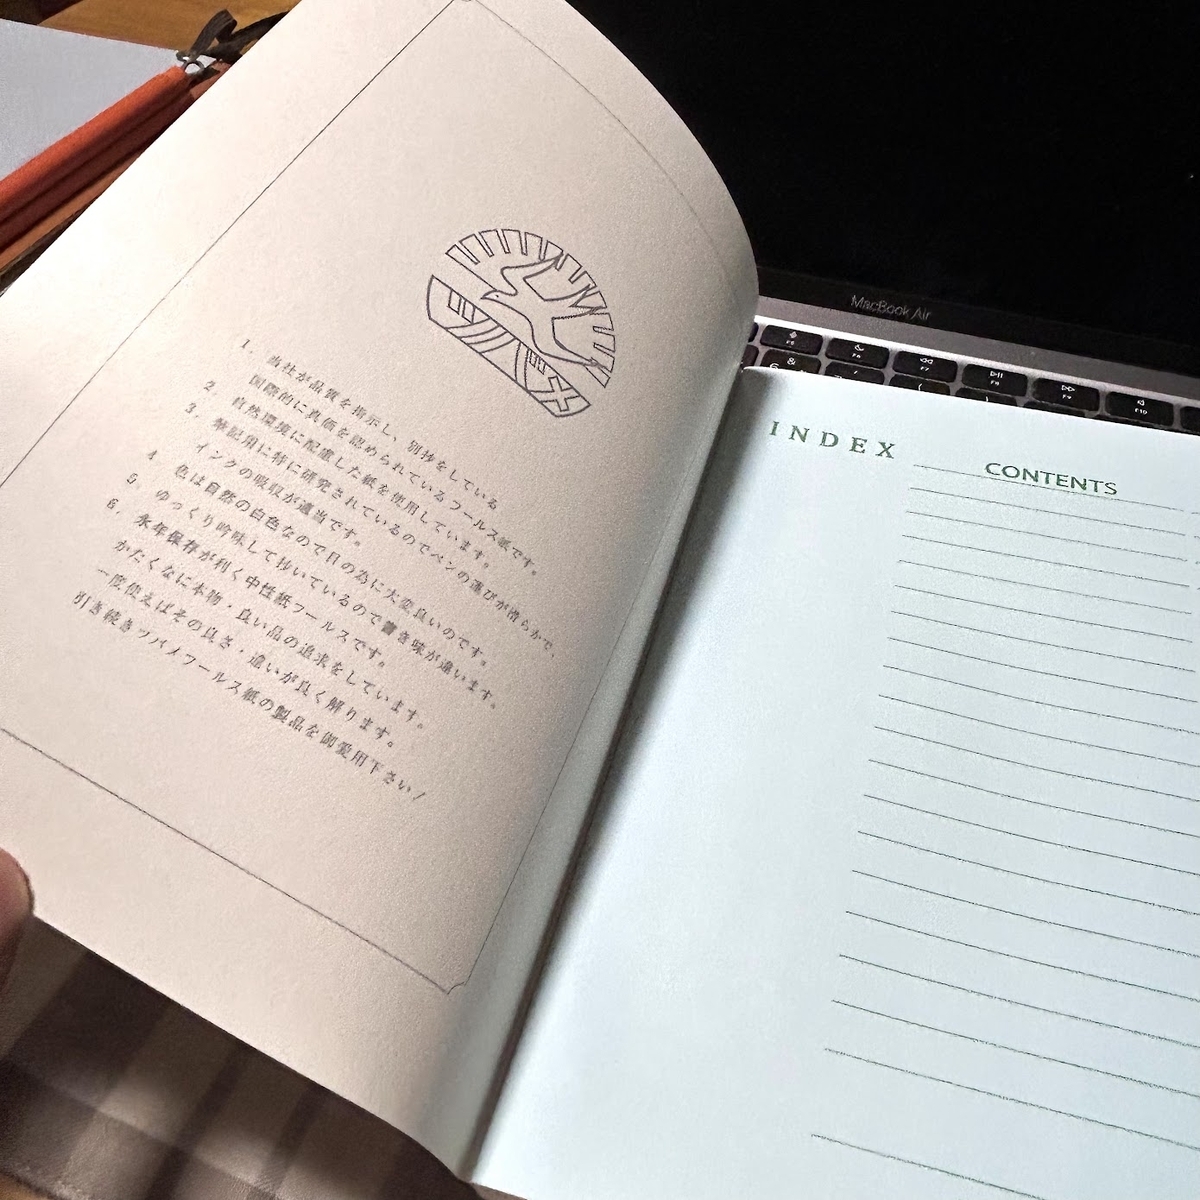 1. 当社が品質を指示し、別抄をしている
国際的に真価を認められているフールス紙です。
2. 自然環境に配慮した紙を使用しています。
3. 筆記用に特に研究されているのでペンの運びが滑らかで、
インクの吸収が適当です。
4. 色は自然の白色なので目の為に大変良いのです。
5. ゆっくり吟味して抄いているので書き味が違います。
6. 永年保存が利く中性紙フールスです。
かたくなに本物・良い品の追求をしています。
一度使えばその良さ・違いが良く解ります。
引き続きツバメフールス紙の製品を御愛用下さい!
MacBook Air
F5
F6
F7
F8
F9
F10
&
6
(
)
INDEX
CONTENTS